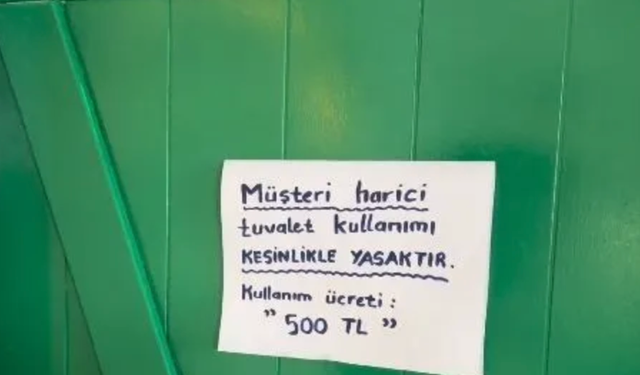 Müşteri harici
tuvalet kullanımı
KESİNLİKLE YASAKTIR.
Kullanım ücreti :
" 500 TL "